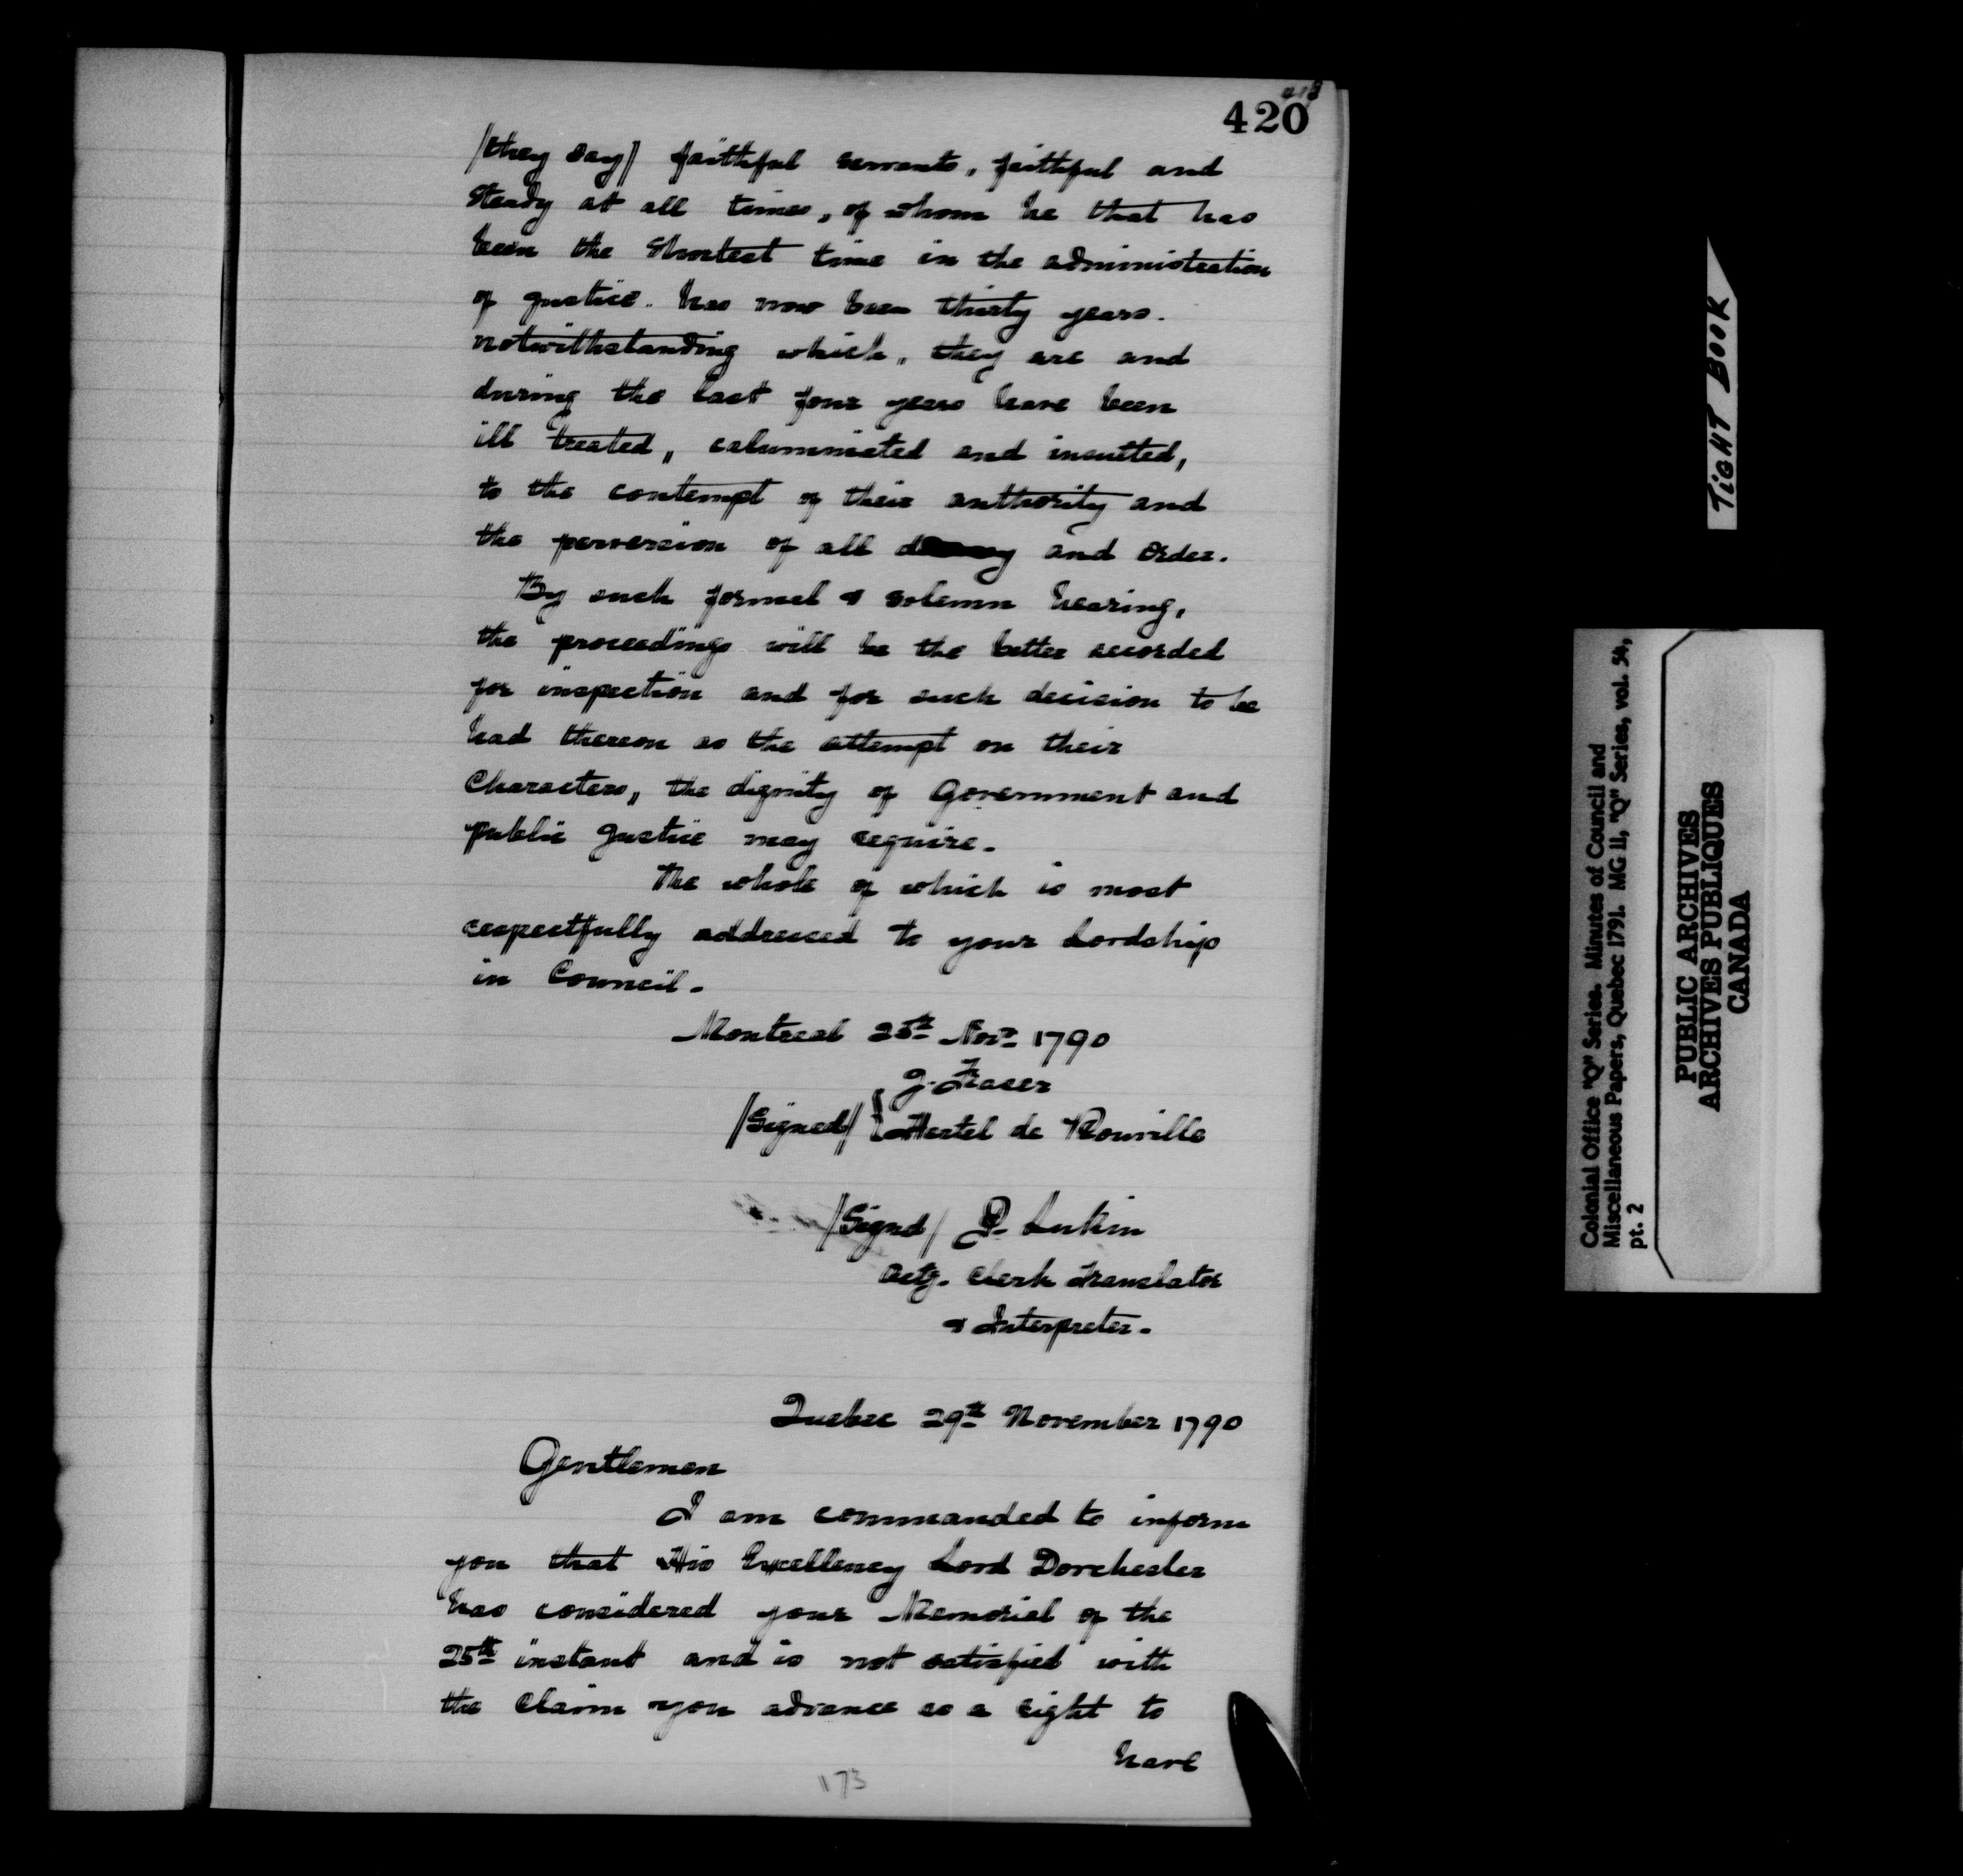 420
/they say/ faithful servants, faithful and
steady at all times, of whom he that has
been the shortest time in the administration
of justice. has now been thirty years.
notwithstanding which, they are and
during the last four years have been
ill treated, calumniated and insulted,
to the contempt of their authority and
the perversion of all and Order.
By such formal & solemn hearing,
the proceedings will be the better recorded
for inspection and for such decision to be
had thereon as the attempt on their
Characters, the dignity of Government and
public Justice may require.
The whole of which is most
respectfully addressed to your Lordship
in Council.
Montreal 25th Novr 1790
J. Fraser
/Signed/ { Hertel de Rouville
/Signd/ J. Lukin
Actg. Clerk Translator
& Interpreter.
Quebec 29th November 1790
Gentlemen
I am commanded to inform
you that His Excellency Lord Dorchester
has considered your Memorial of the
25th instant and is not satisfied with
the Claim you advance as a right to
have
173
TIGHT BOOK
Colonial Office "Q" Series. Minutes of Council and
Miscellaneous Papers, Quebec 1791. MG 11, "Q" Series, vol. 54,
pt. 2
PUBLIC ARCHIVES
ARCHIVES PUBLIQUES
CANADA